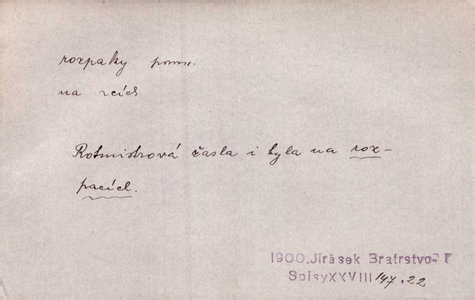 rozpaky pomn.
na rcích
Rotmistrová žasla i byla na roz-
pacích.
1900.Jirásek Bratrstvo- I
Spisy XXVIII 147.22